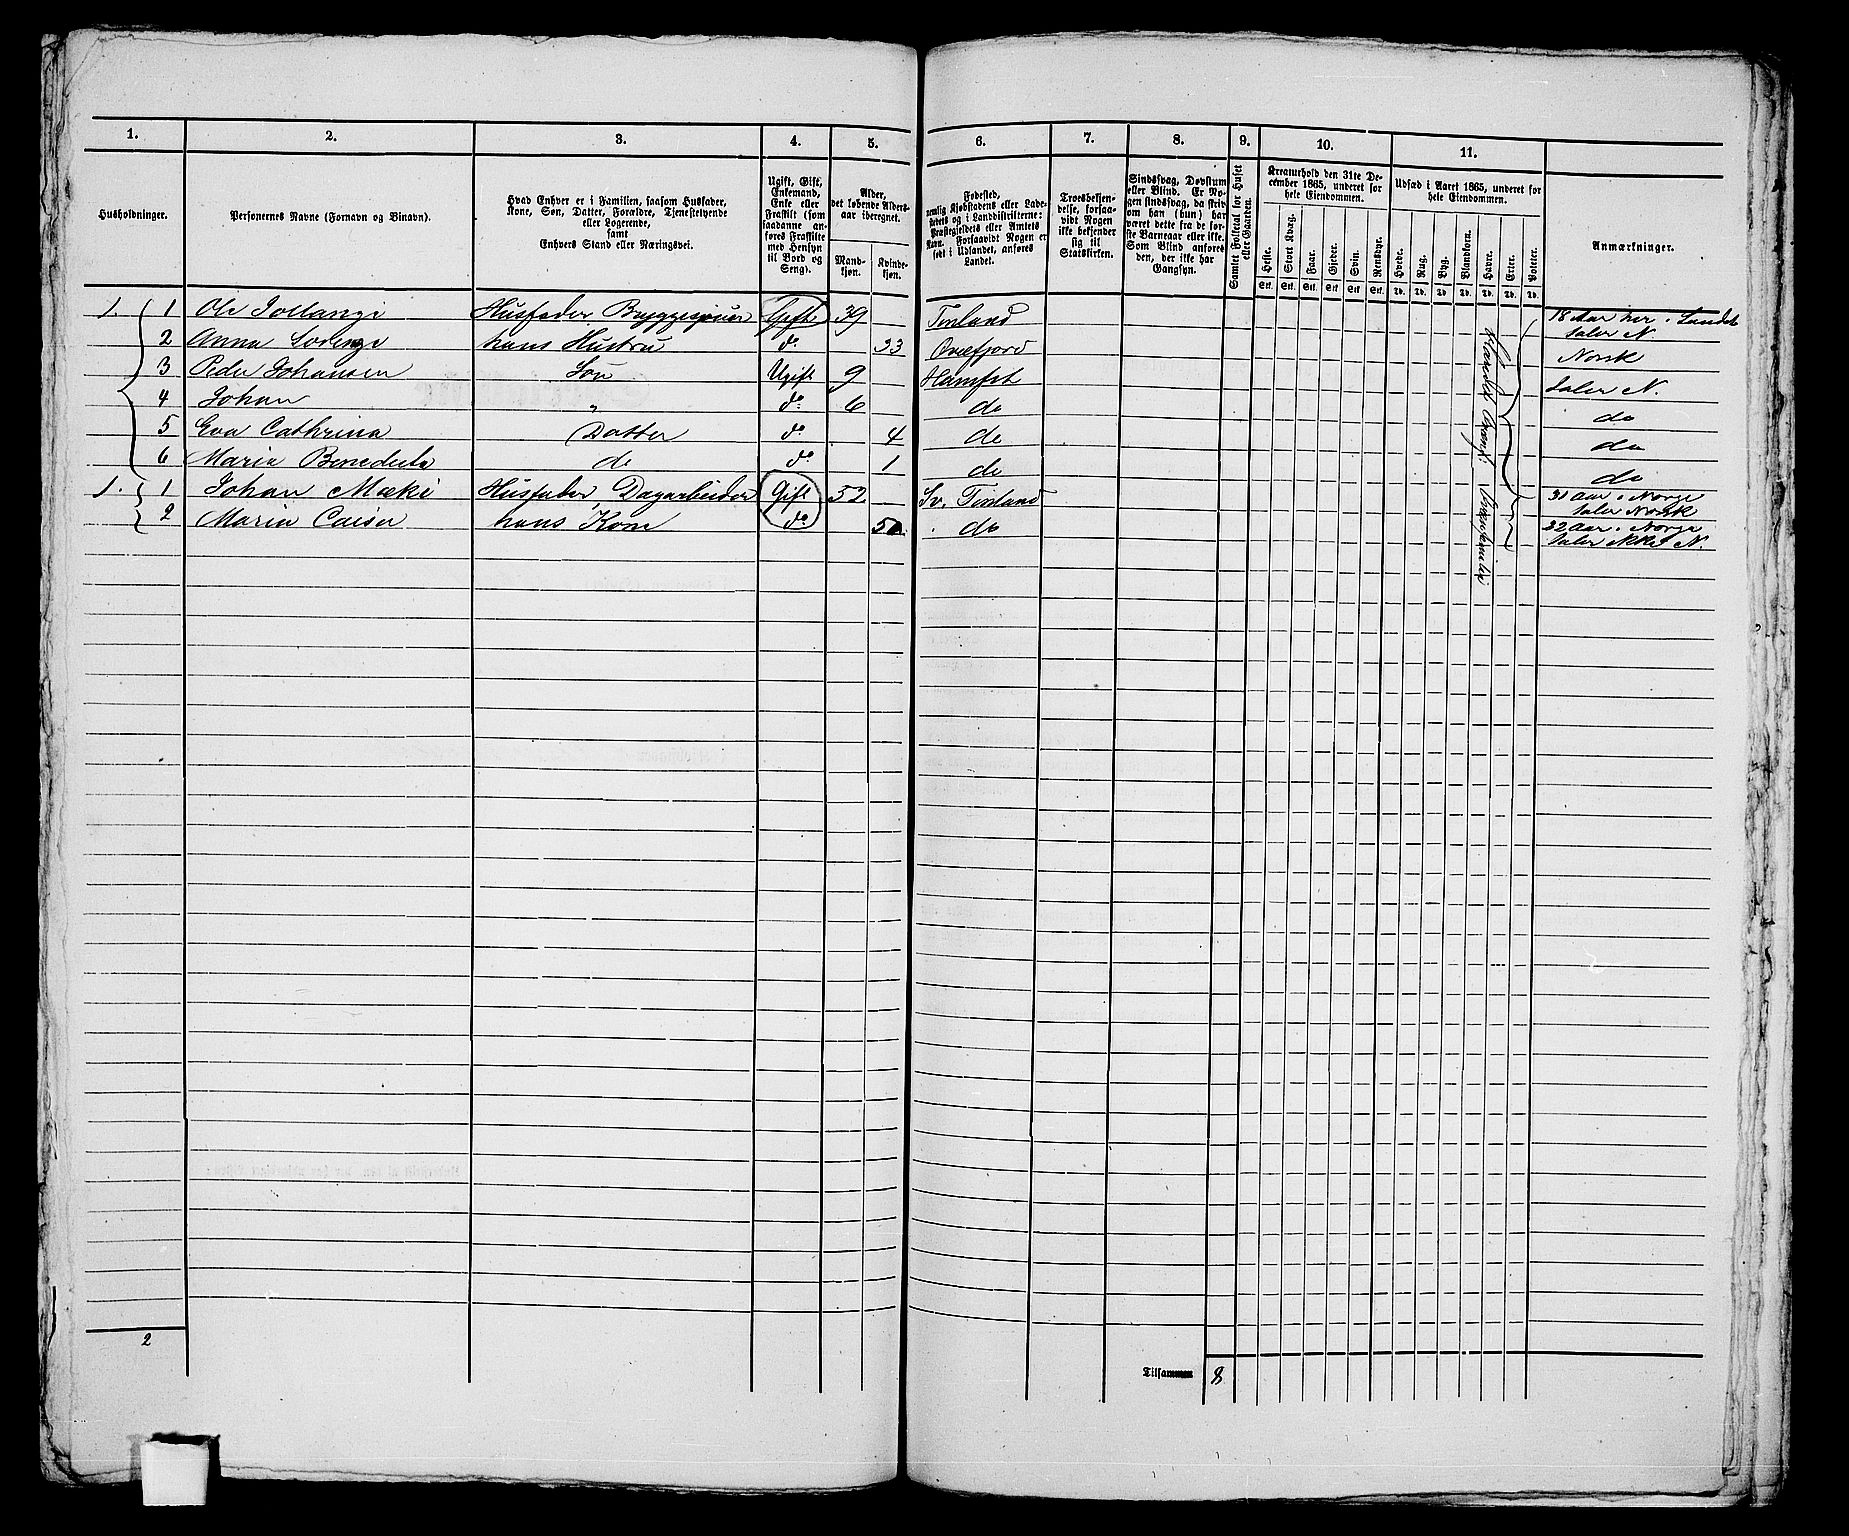 1. 2. 3. 4. 5. 6. 7. 8. 9. 10. 11.
Husholdninger.
Personernes Navne (Fornavn og Binavn).
Hvad Enhver er i Familien, saasom Husfader,
Kone, Søn, Datter, Forældre, Tjenestetyende
eller Logerende,
samt
Enhvers Stand eller Næringsvei.
Ugift, Gift,
Enkemand,
Enke eller
Fraskilt (som
saadanne an-
føres Fraskilte
med Hensyn
til Bord og
Seng).
Alder,
det løbende Alders-
aar iberegnet.
Mand-
kjøn.
Kvinde-
kjøn.
Fødested,
nemlig Kjøbstadens eller Lade-
stedets og i Landdistrikterne:
Præstegjeldets eller Amtets
Navn. Forsaavidt Nogen er
født i Udlandet, anføres
Landet.
Troesbekjen-
delse, forsaa-
vidt Nogen
ikke bekjender
sig til
Statskirken.
Sindssvag, Døvstum
eller Blind. Er No-
gen sindssvag, da skriv
om han (hun) har
været dette fra de før-
ste Barneaar eller ikke.
Som Blind anføres
den, der ikke har
Gangsyn.
Samlet Folketal for Huset
eller Gaarden.
Kreaturhold den 31te De-
cember 1865, underet for
hele Eiendommen.
Heste. Stort Kvæg. Faar. Gjeder. Svin. Rensdyr.
Stk. Stk. Stk. Stk. Stk. Stk.
Udsæd i Aaret 1865, underet for
hele Eiendommen.
Hvede. Rug. Byg. Blandkorn. Havre. Erter. Poteter.
Td. Td. Td. Td. Td. Td. Td.
Anmærkninger.
1. 1 Ole Tollangi Husfader Gift 39 Finland 18 Aar her i Landet
taler N.
2 Anna hans Hustru do 33 Norsk
3 Peder Johansen Søn Ugift 9 Hamfst taler N.
4 Johan " do 6 do do
5 Eva Cathrina Datter do 4 do do
6 Maria do do 1 do do
1. 1 Johan Mæki Husfader, Dagarbeider Gift 52 Sv. Finland 31 Aar i Norge
taler Norsk
2 Maria hans Kone do 50 do 22 Aar i Norge
taler ikke N.
2
Tilsammen 8